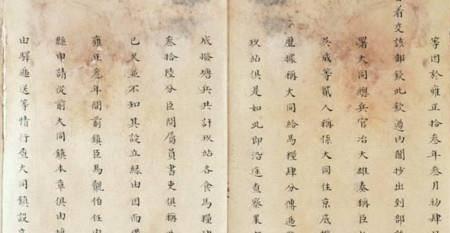 等因於雍正拾叁年叁月初肆日
看交該部欽此欽遵內閣抄出到部
署大同總兵官冶大雄奏稱臣
兵咸等貳人稱係大同住京底
歷據稱大同給馬糧肆分傳遞
玖站俱是如此即沿途查察果
成撥塘兵共計玖站各食馬糧
叁拾陸分臣問屬員書吏俱稱
已久並不知其設立緣由因而備
雍正元年間前鎮臣馬覿伯任
縣申請從前大同鎮本章俱由
由驛遞送等情行查大同鎮設